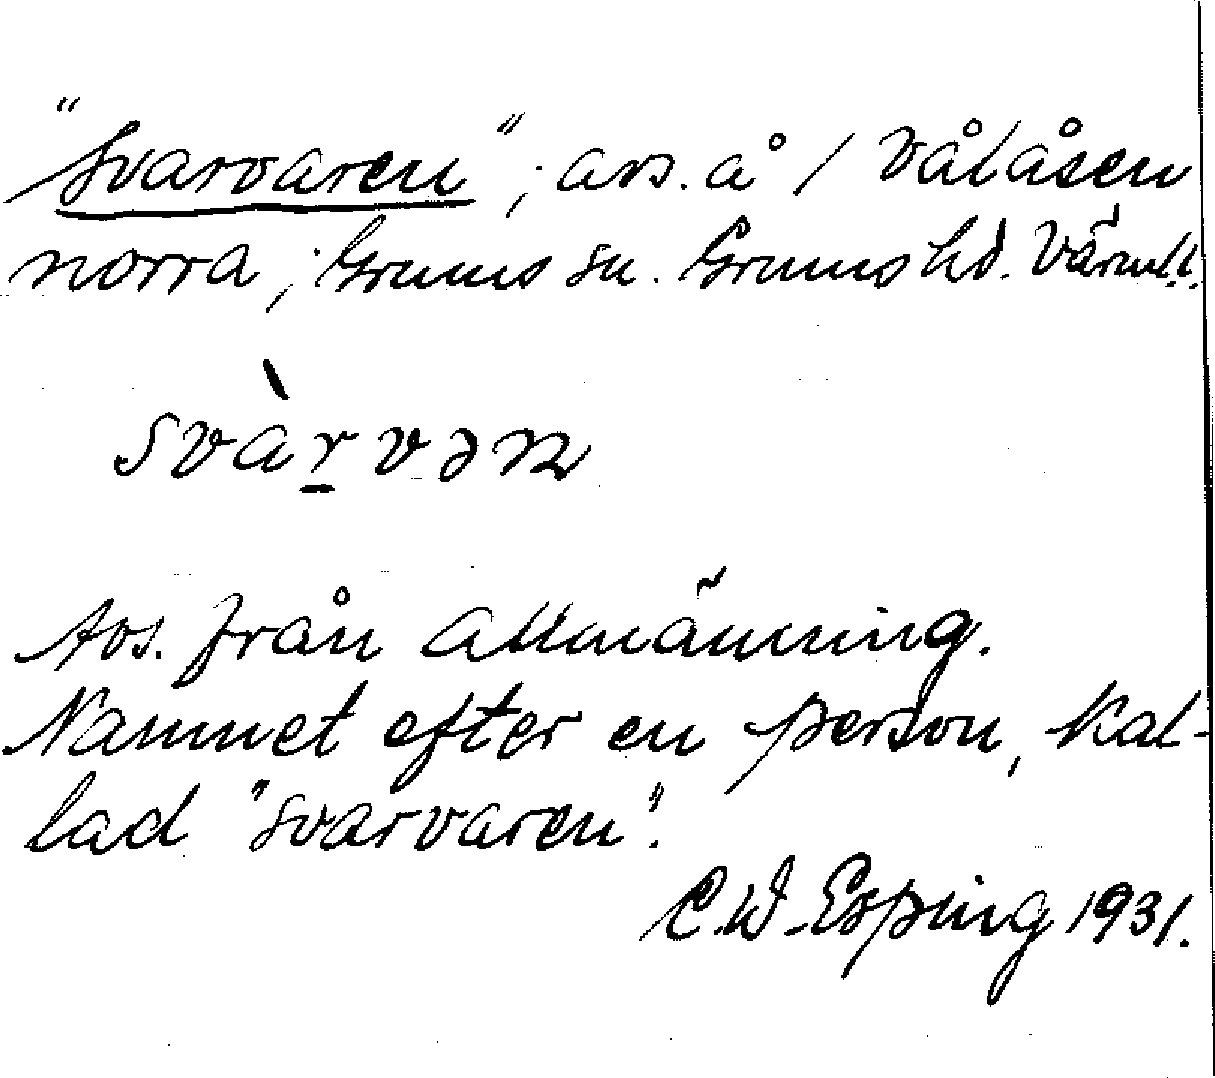 "Svarvaren"; avs. å / Vålåsen
norra; Grums sn. Grums hd. Värmll.
svàr̲vən
Avs. från allmänning.
Namnet efter en person, kal-
lad "Svarvaren".
C.W. Esping 1931.